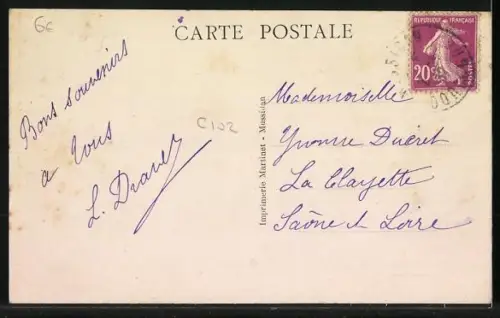 6€
CARTE POSTALE
RÉPUBLIQUE FRANÇAISE
20c
POSTES
Bons souvenirs
à tous
L.
C102
Imprimerie Martinet - Mussidan
Mademoiselle
Yvonne Ducret
La Clayette
Saône & Loire